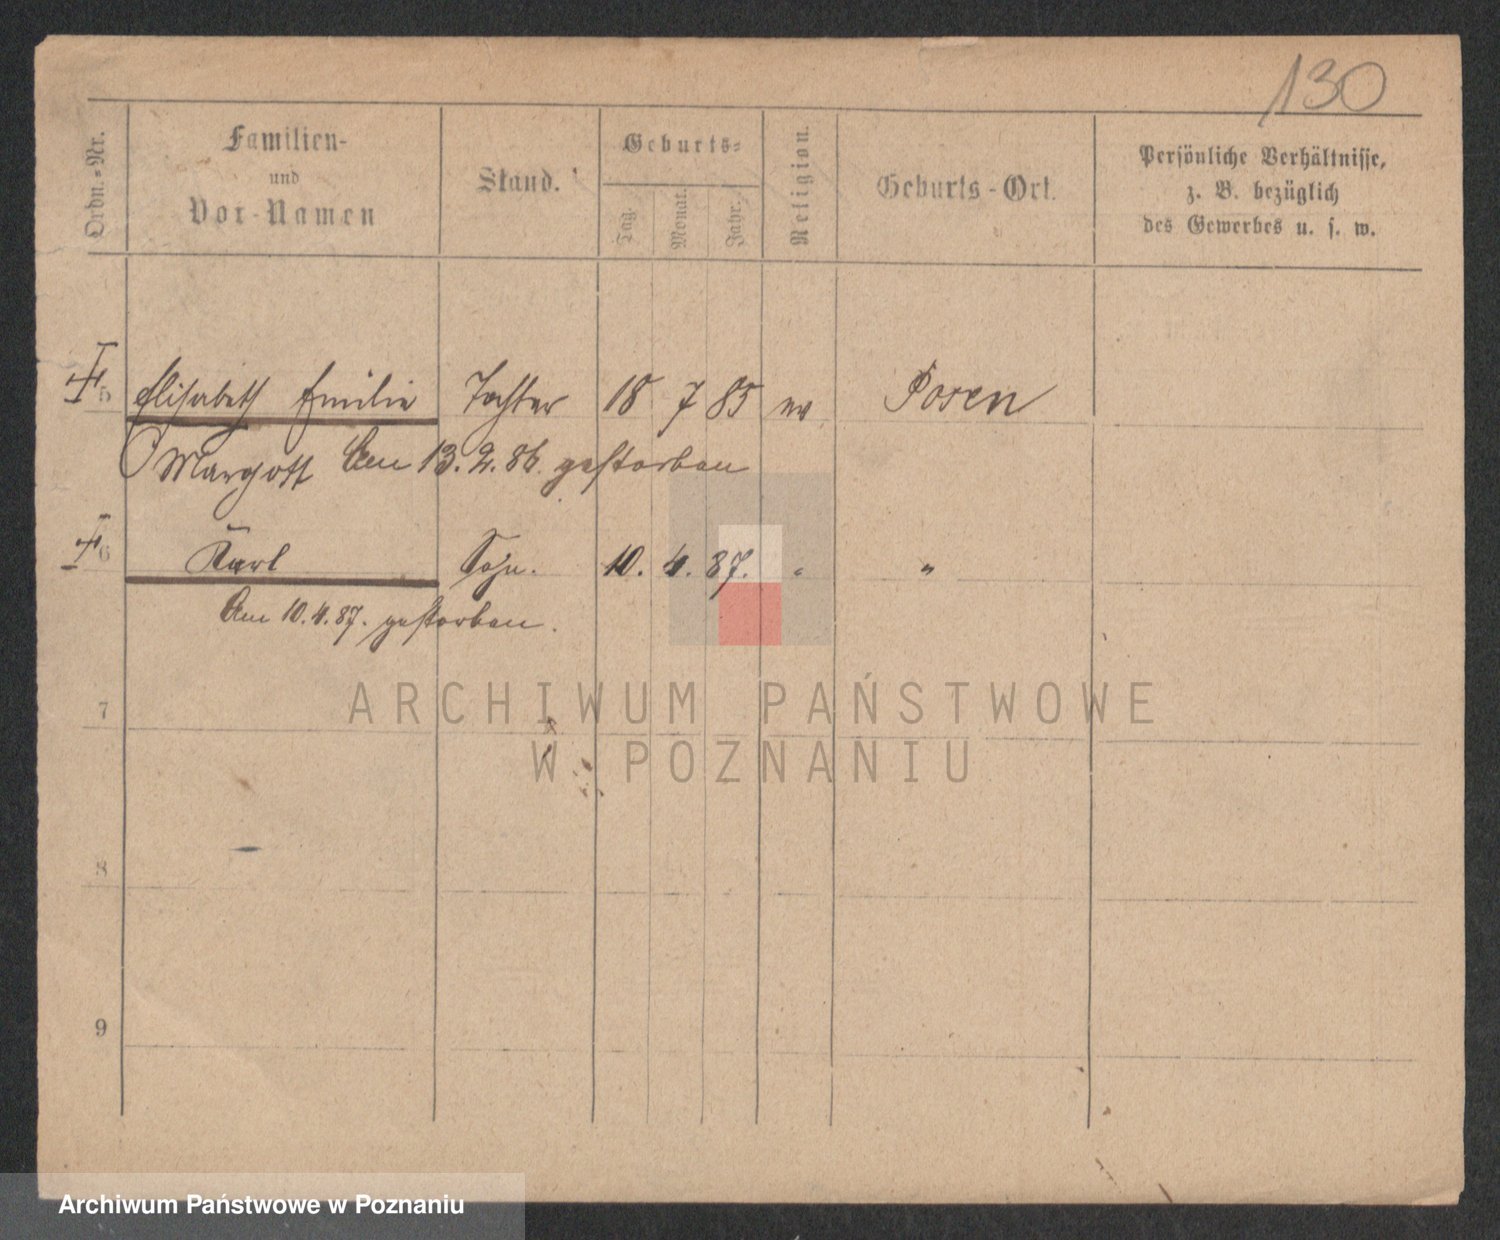 130
Ordn.=Nr.
Familien-
und
Vor-Namen
Stand.
Geburts=
Tag.
Monat.
Jahr.
Religion.
Geburts-Ort.
Persönliche Verhältnisse,
z. B. bezüglich
des Gewerbes u. s. w.
5 Elisabeth Emilie Tochter 18 7 85 ev Posen
Margott Am 13.2.86. gestorben
6 Karl Sohn. 10. 4. 87. " "
Am 10.4.87. gestorben.
ARCHIWUM PAŃSTWOWE
W POZNANIU
7
8
9
Archiwum Państwowe w Poznaniu